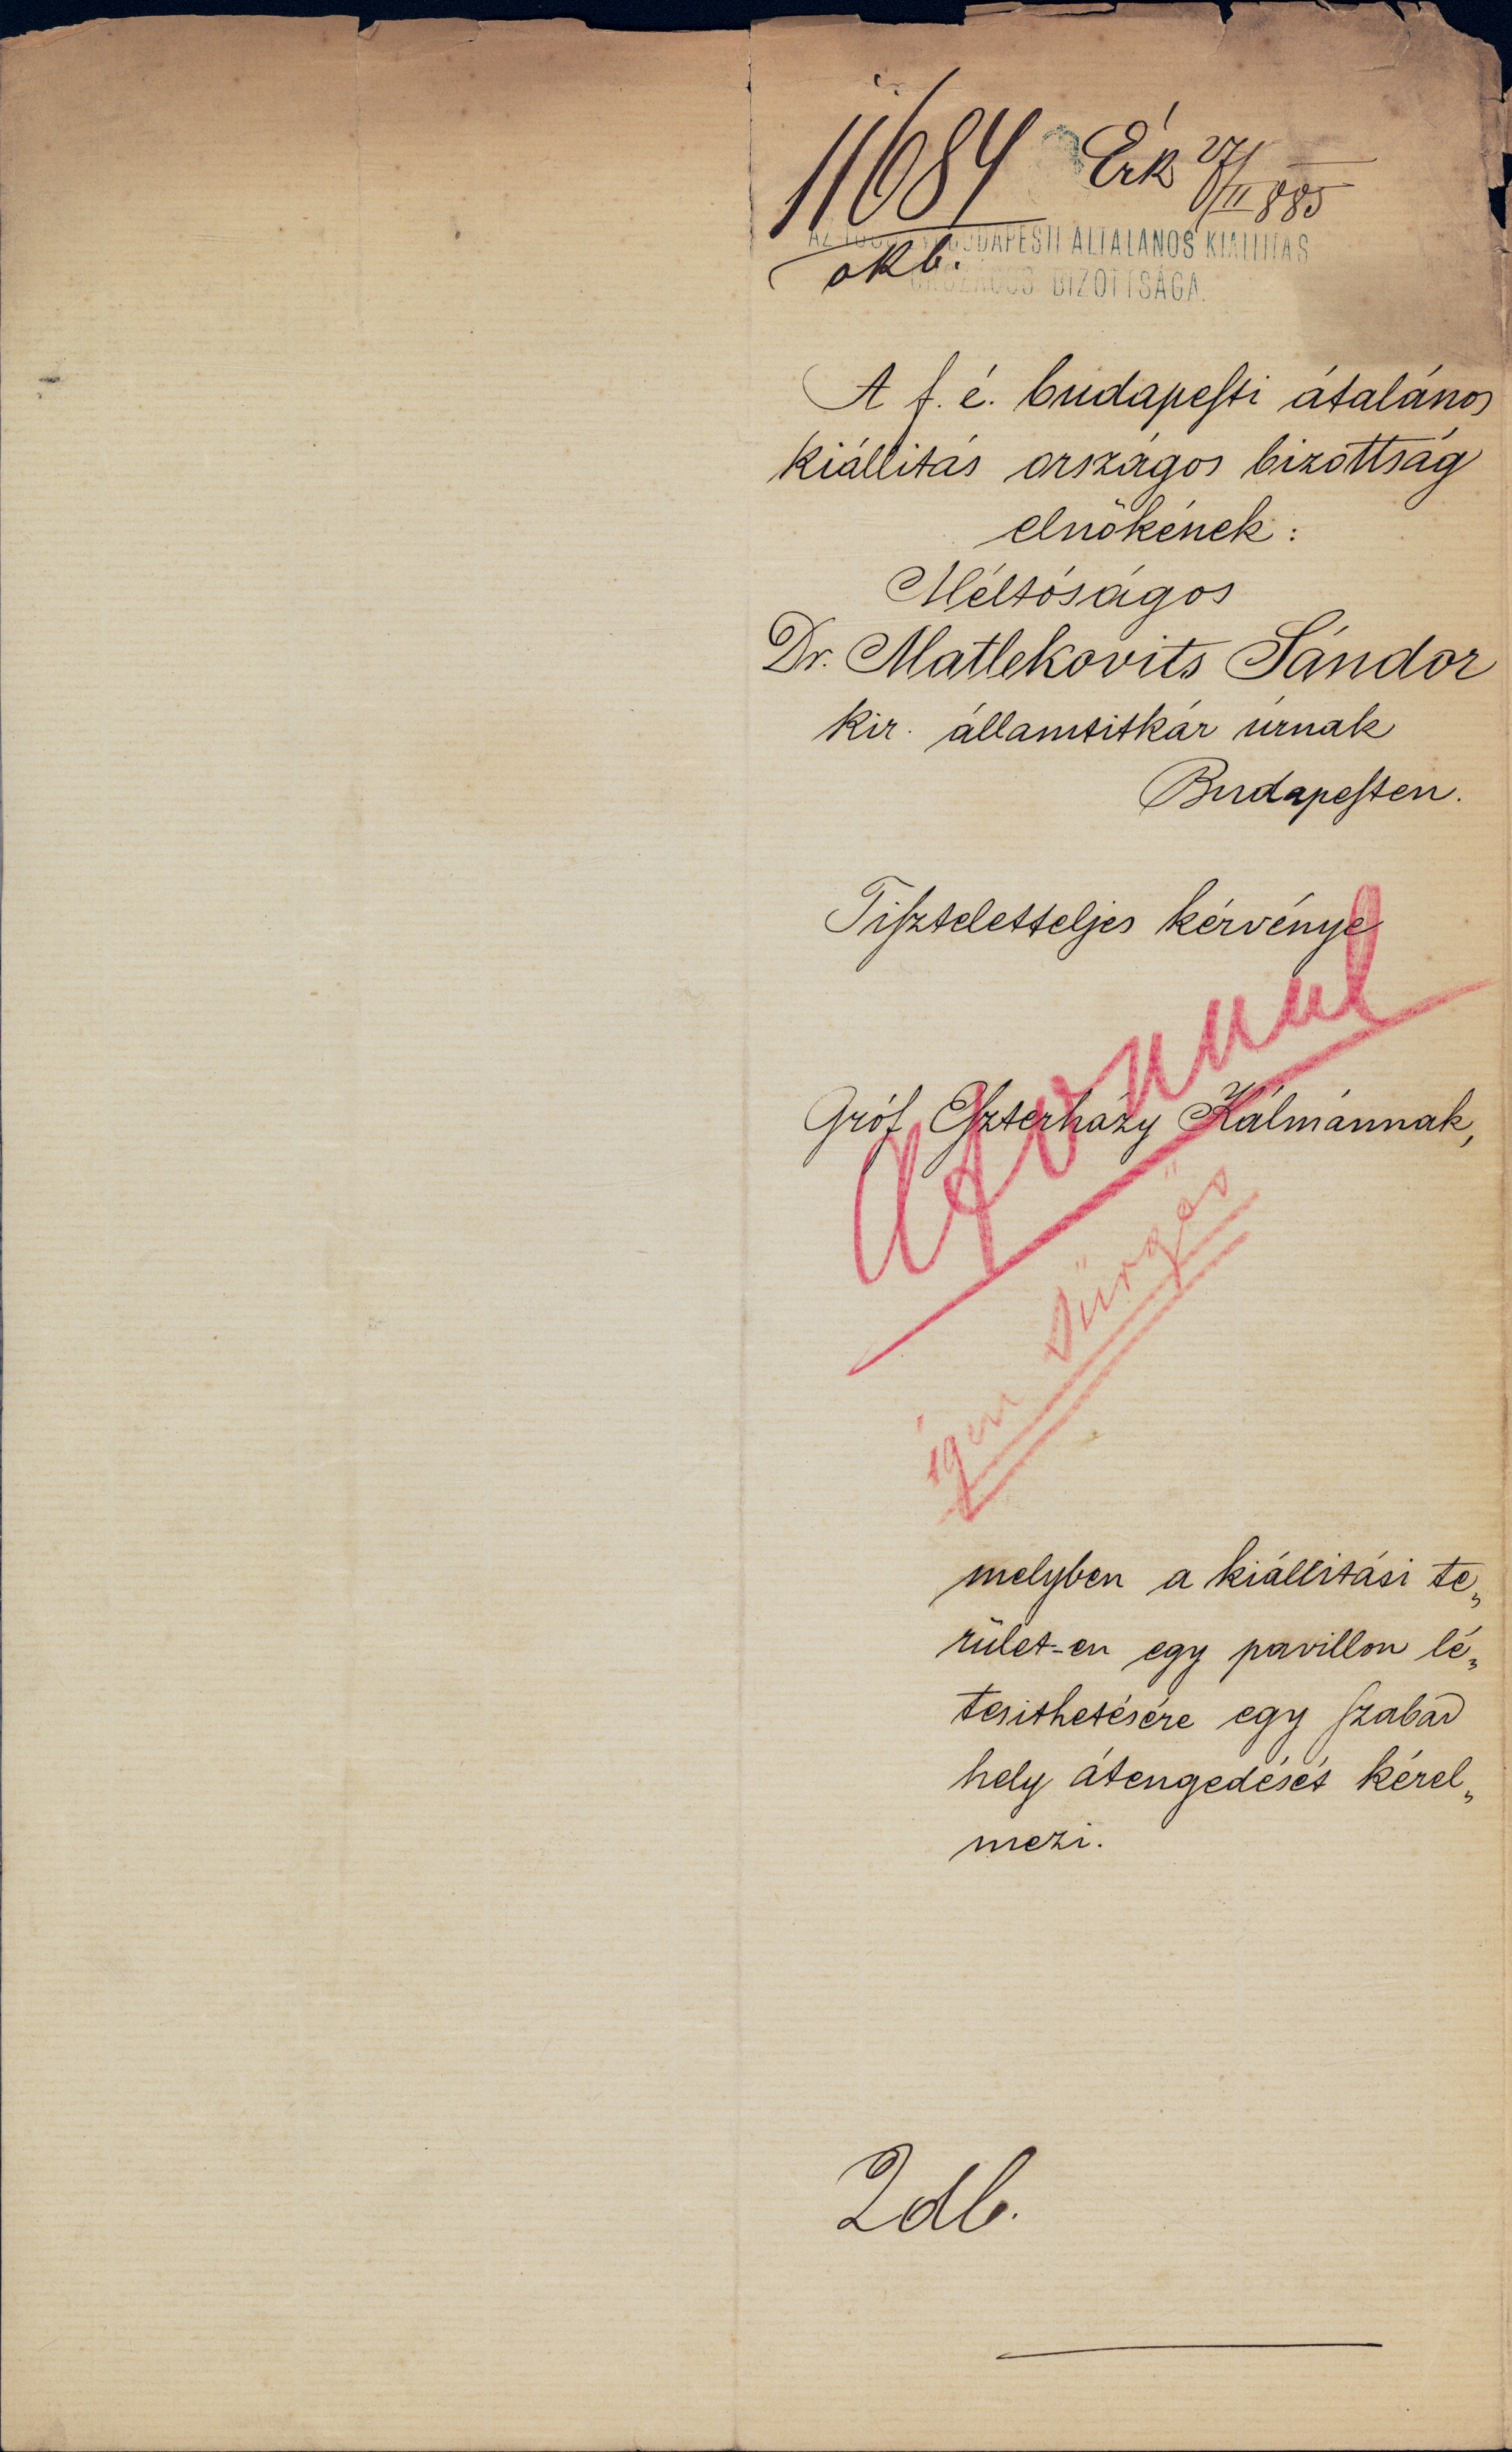 11684 Érk 27/II 885
okb.
AZ BUDAPESTI ÁLTALÁNOS KIÁLLITÁS
ORSZÁGOS BIZOTTSÁGA.
A f. é. budapesti átalános
kiállitás országos bizottság
elnökének:
Méltóságos
Dr. Matlekovits Sándor
kir. államtitkár úrnak
Budapesten.
Tiszteletteljes kérvénye
Azonnal
Gróf Eszterházy Kálmánnak,
igen sürgös
melyben a kiállitási te„
rület-en egy pavillon lé„
tesithetésére egy szabad
hely átengedését kérel„
mezi.
2 db.